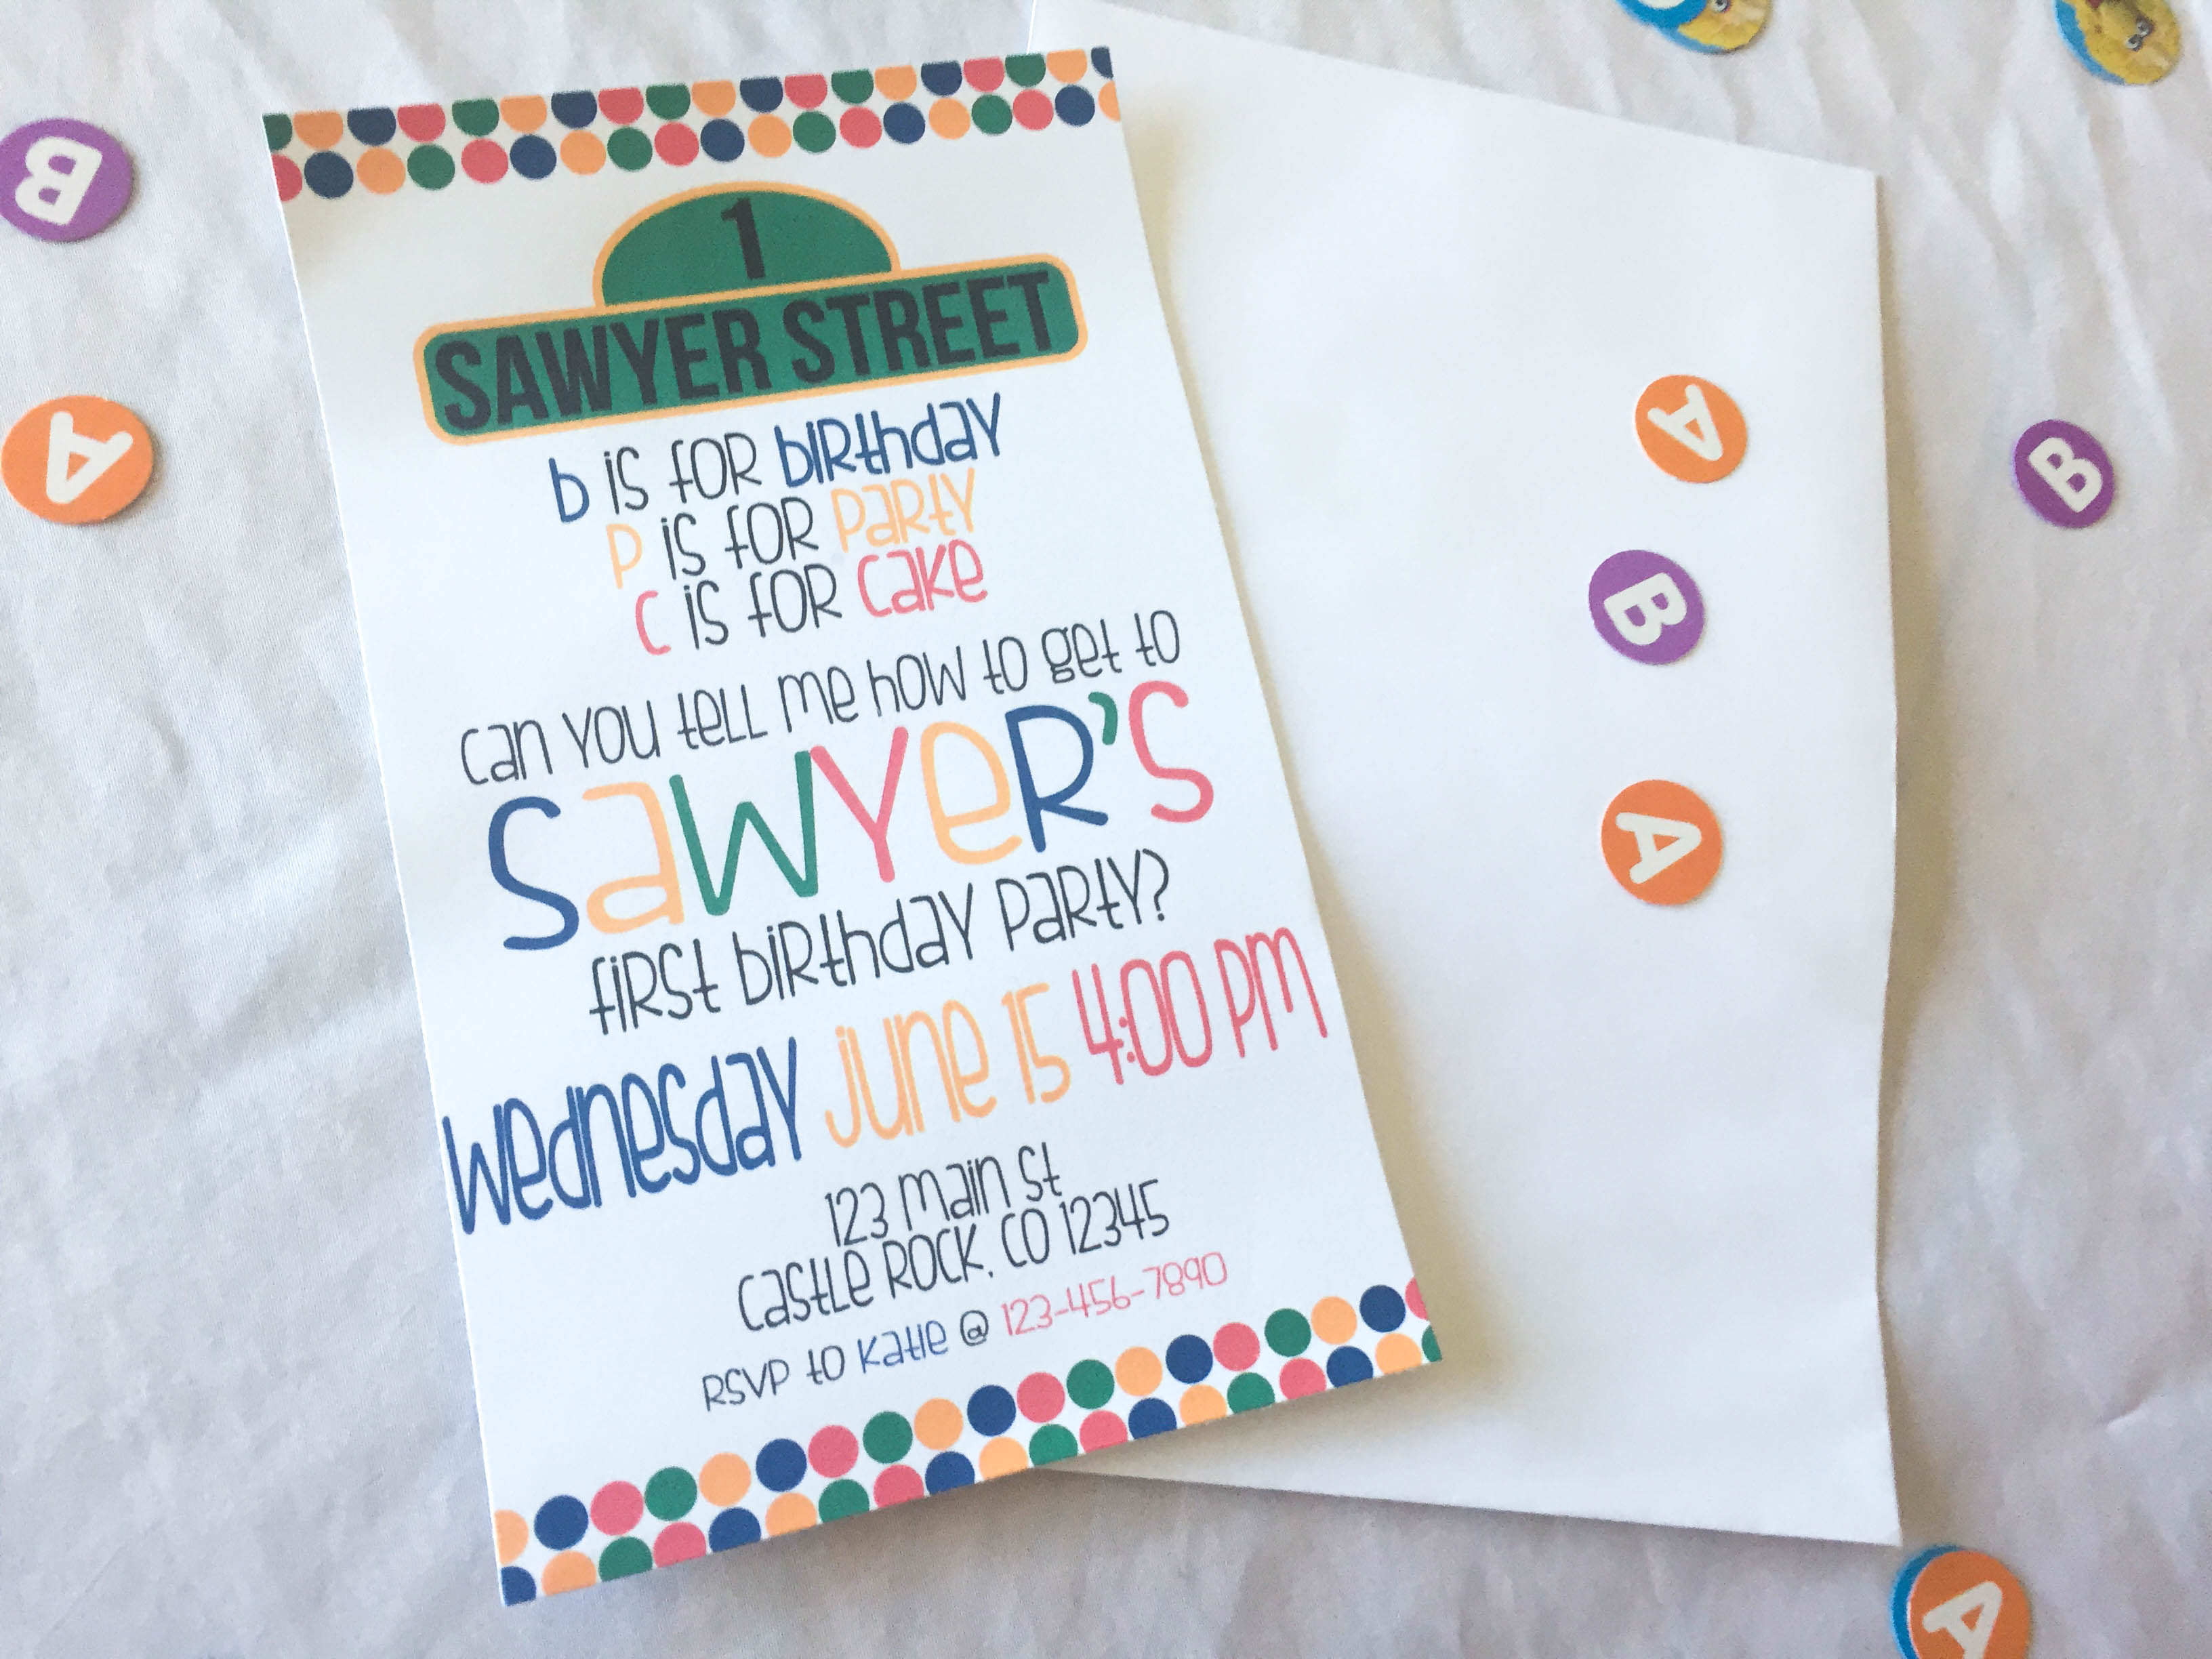 1
SAWYER STREET
b is for birthday
P is for Party
C is for Cake
can you tell me how to get to
Sawyer's
first birthday party?
Wednesday June 15 4:00 PM
123 Main St
Castle Rock, CO 12345
RSVP to Katie @ 123-456-7890
B
A
A
B
B
A
A